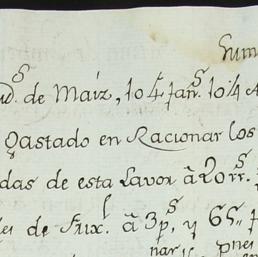 Sum
de Maíz, 104 Jan.s 10 4
Gastado en Racionar los
das de esta Lavor â 20 rr.s
de Frix.l â 3 p.s y 65